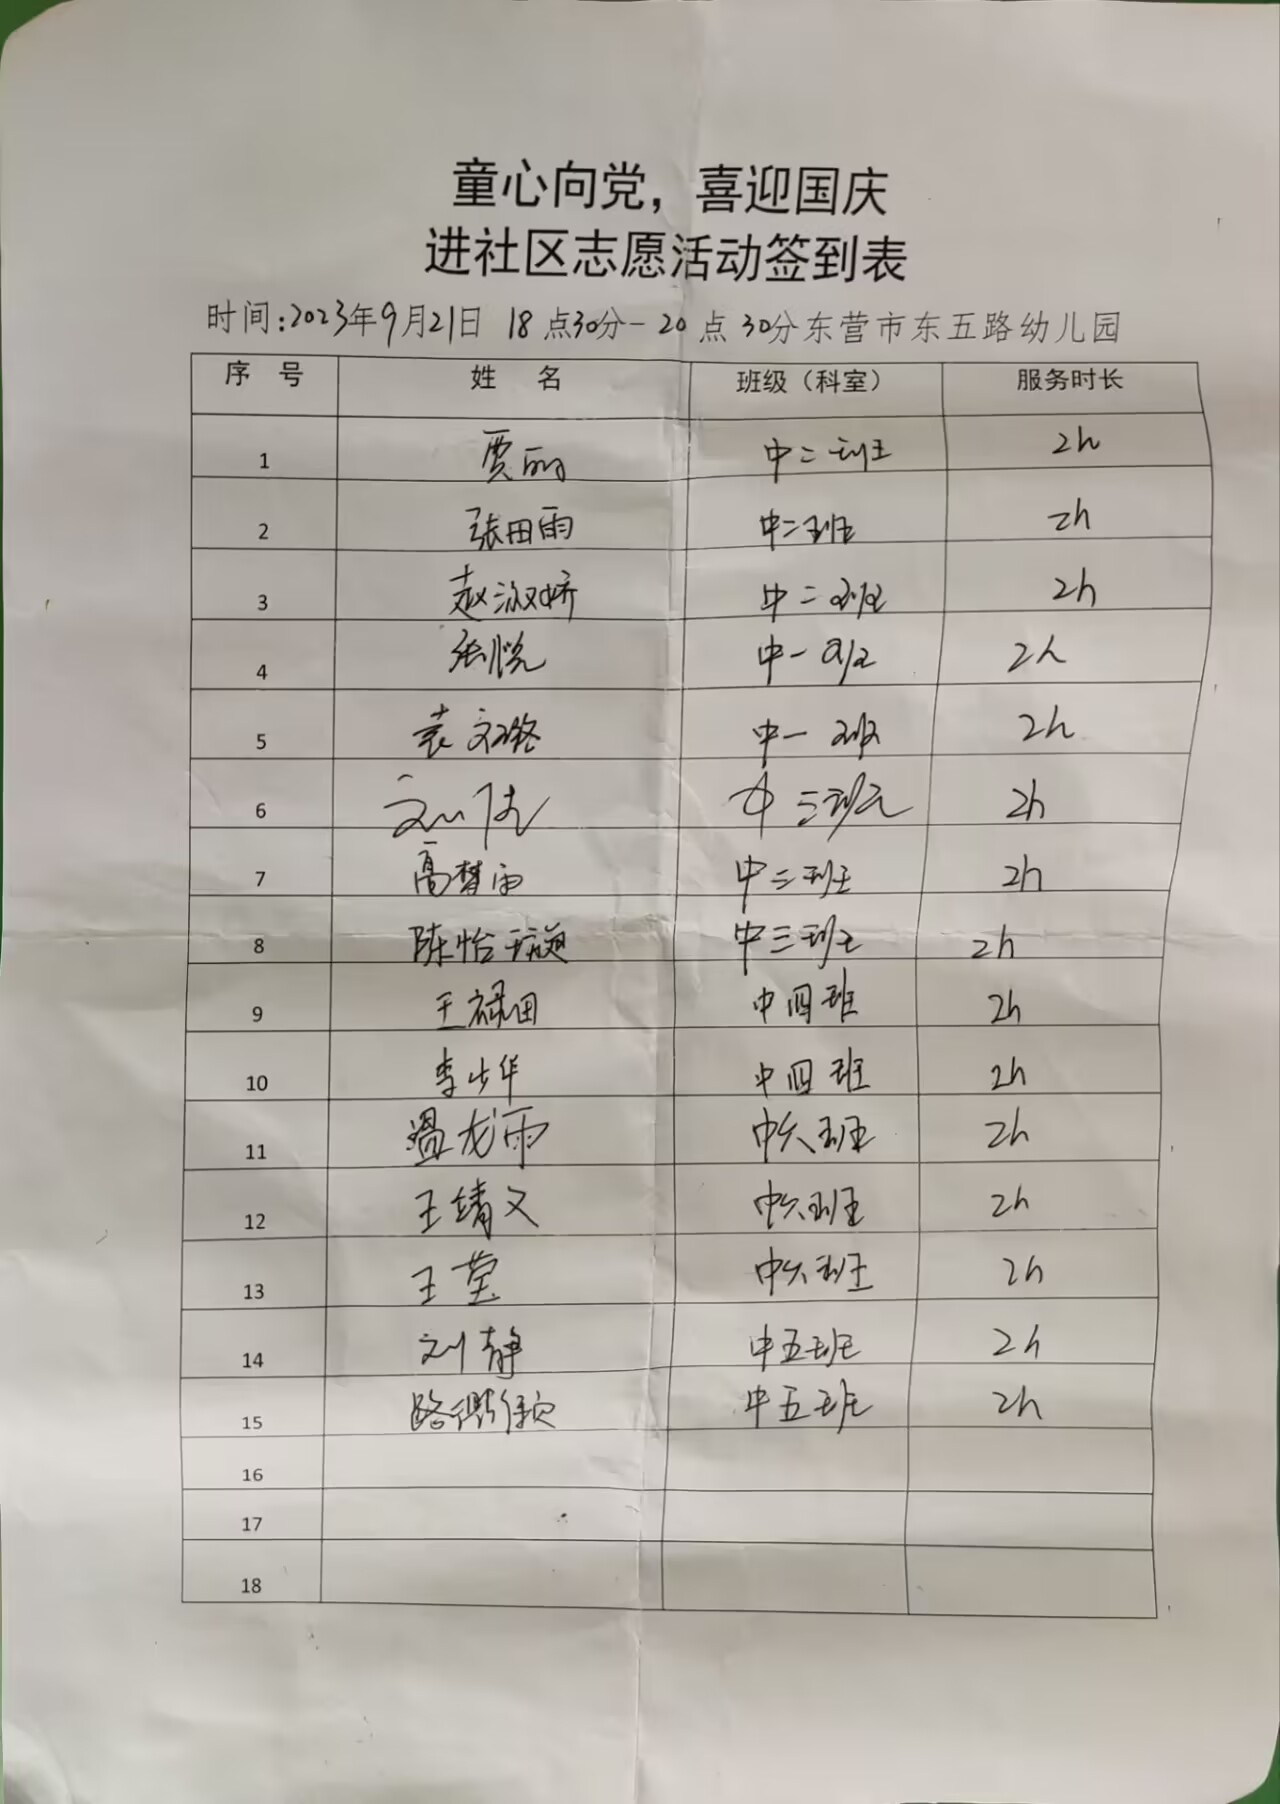 童心向党，喜迎国庆
进社区志愿活动签到表
时间:2023年9月21日 18点30分-20点30分东营市东五路幼儿园
序号 姓名 班级（科室） 服务时长
1 贾丽 中二班 2h
2 张田雨 中二班 2h
3 赵淑娇 中二班 2h
4 张悦 中一班 2h
5 袁文璐 中一班 2h
6 刘倩 中三班 2h
7 高梦雨 中三班 2h
8 陈怡璇 中三班 2h
9 王禄田 中四班 2h
10 李少华 中四班 2h
11 温龙雨 中六班 2h
12 王靖文 中六班 2h
13 王莹 中六班 2h
14 刘静 中五班 2h
15 路 中五班 2h
16
17
18